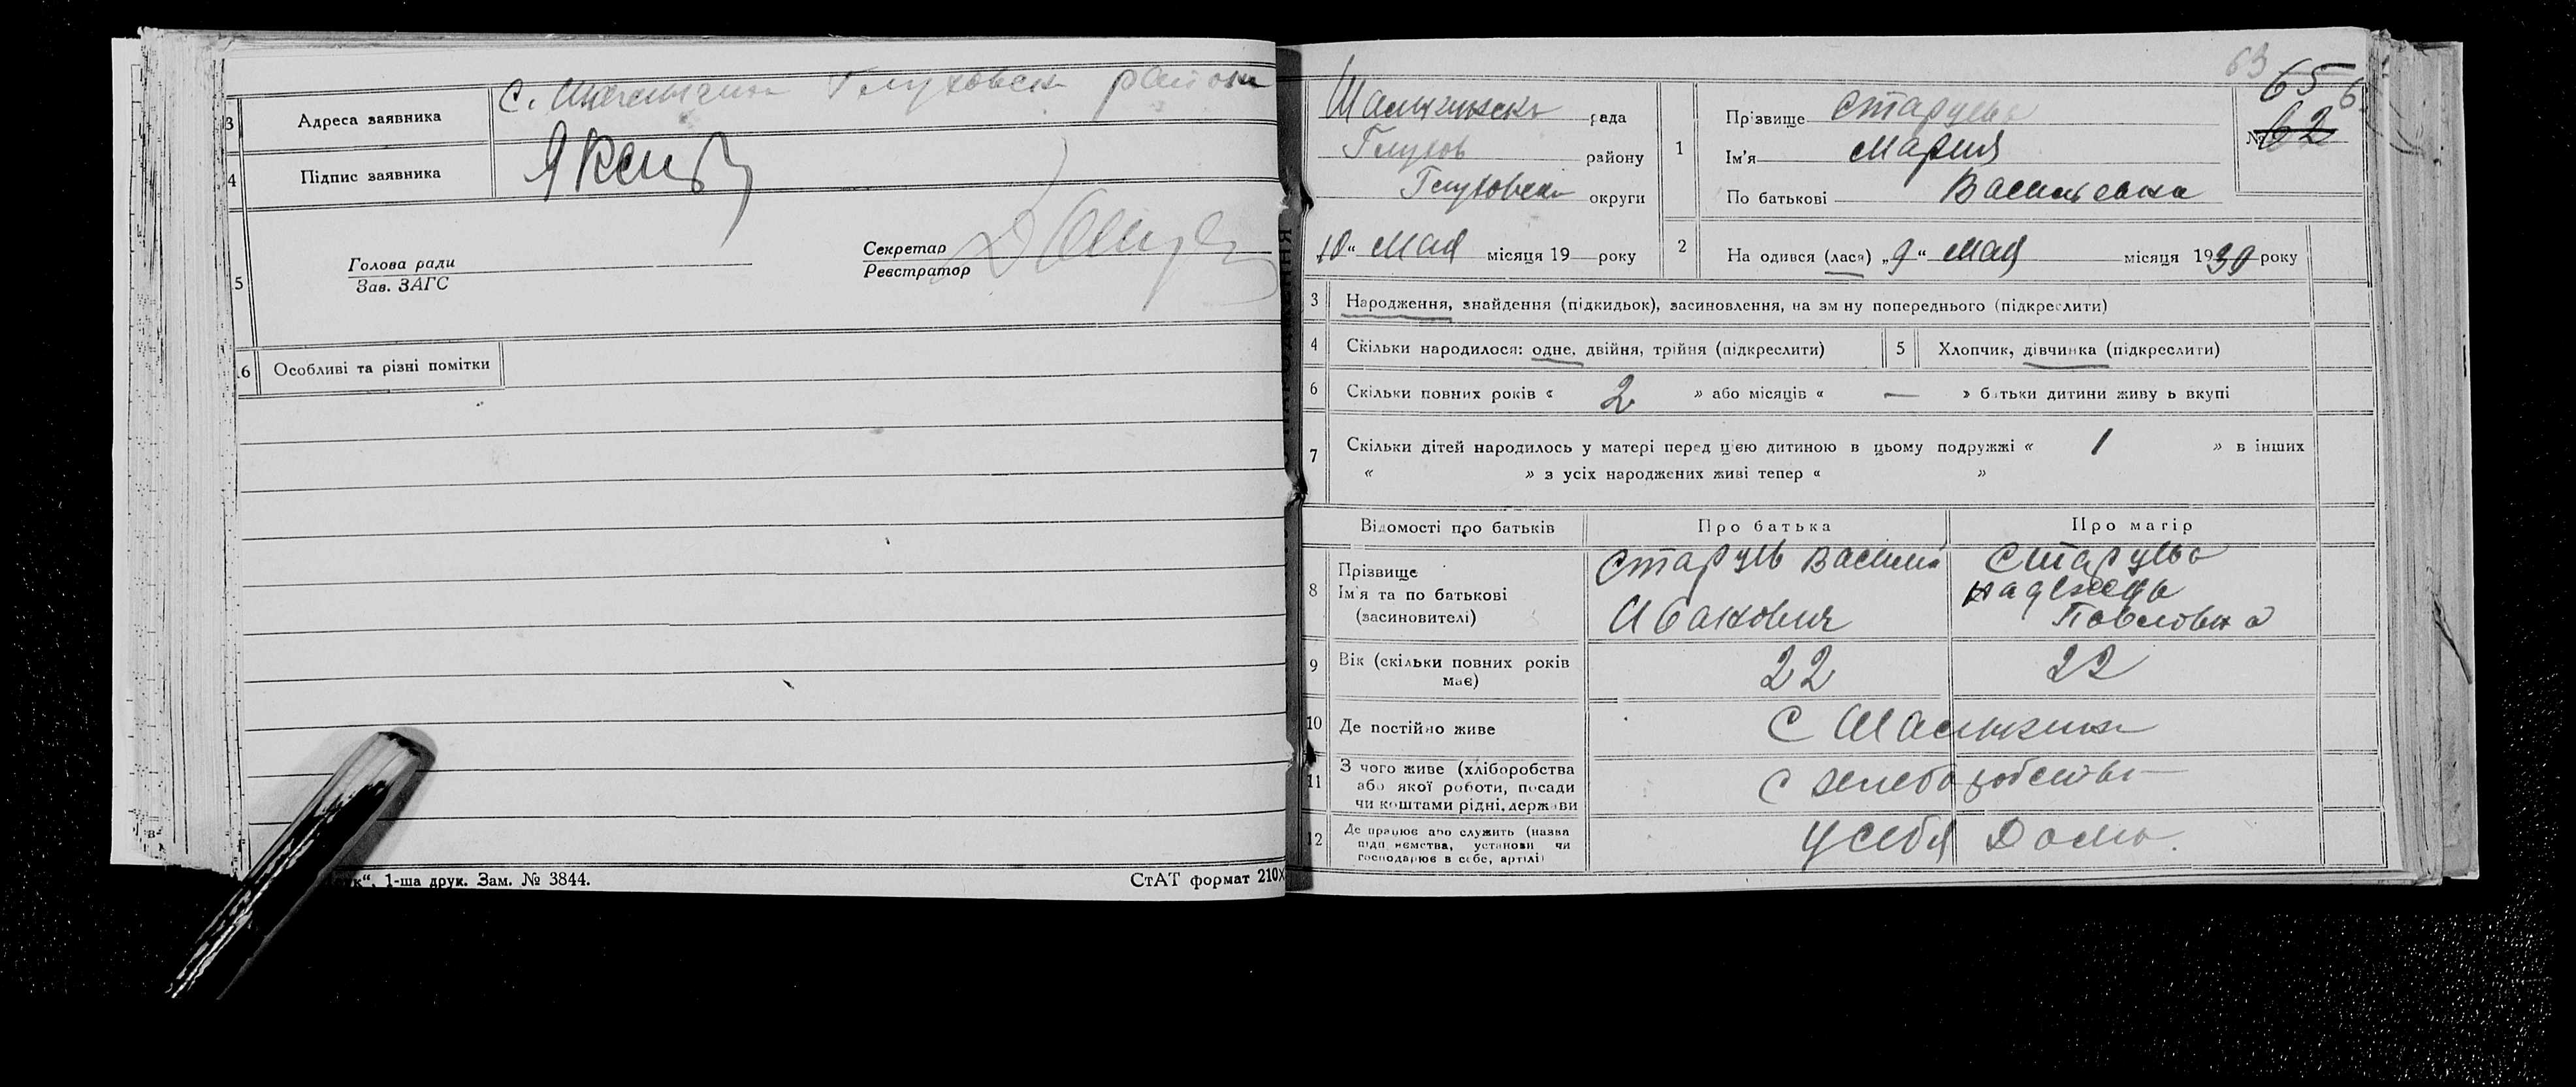 3 Адреса заявника С. Глуховск района
4 Підпис заявника
5 Голова ради
Зав. ЗАГС
Секретар
Реєстратор
16 Особливі та різні помітки
1-ша друк. Зам. № 3844.
СтАТ формат 210х
63
65
№ 62
Шалыгинск рада
Глухов району
Глуховск округи
1 Прізвище
Ім'я Мария
По батькові Васильевна
10 " Мая місяця 19 року
2 На одився (лася) „9 " Мая місяця 1930 року
3 Народження, знайдення (підкидьок), засиновлення, на зм ну попереднього (підкреслити)
4 Скільки народилося: одне, двійня, трійня (підкреслити)
5 Хлопчик, дівчинка (підкреслити)
6 Скільки повних років « 2 » або місяців « — » батьки дитини живу ь вкупі
7 Скільки дітей народилось у матері перед цією дитиною в цьому подружжі « 1 » в інших
« » з усіх народжених живі тепер « »
Відомості про батьків Про батька Про матір
8 Прізвище
Ім'я та по батькові
(засиновителі)
Василий
Иванович
Надежда
Павловна
9 Вік (скільки повних років
має)
22 22
10 Де постійно живе С Шалыгина
11 З чого живе (хліборобства
або якої роботи, посади
чи коштами рідні, держави
с
12 Де працює або служить (назва
підп иємства, установи чи
господарює в себе, артілі)
у себя Дома.